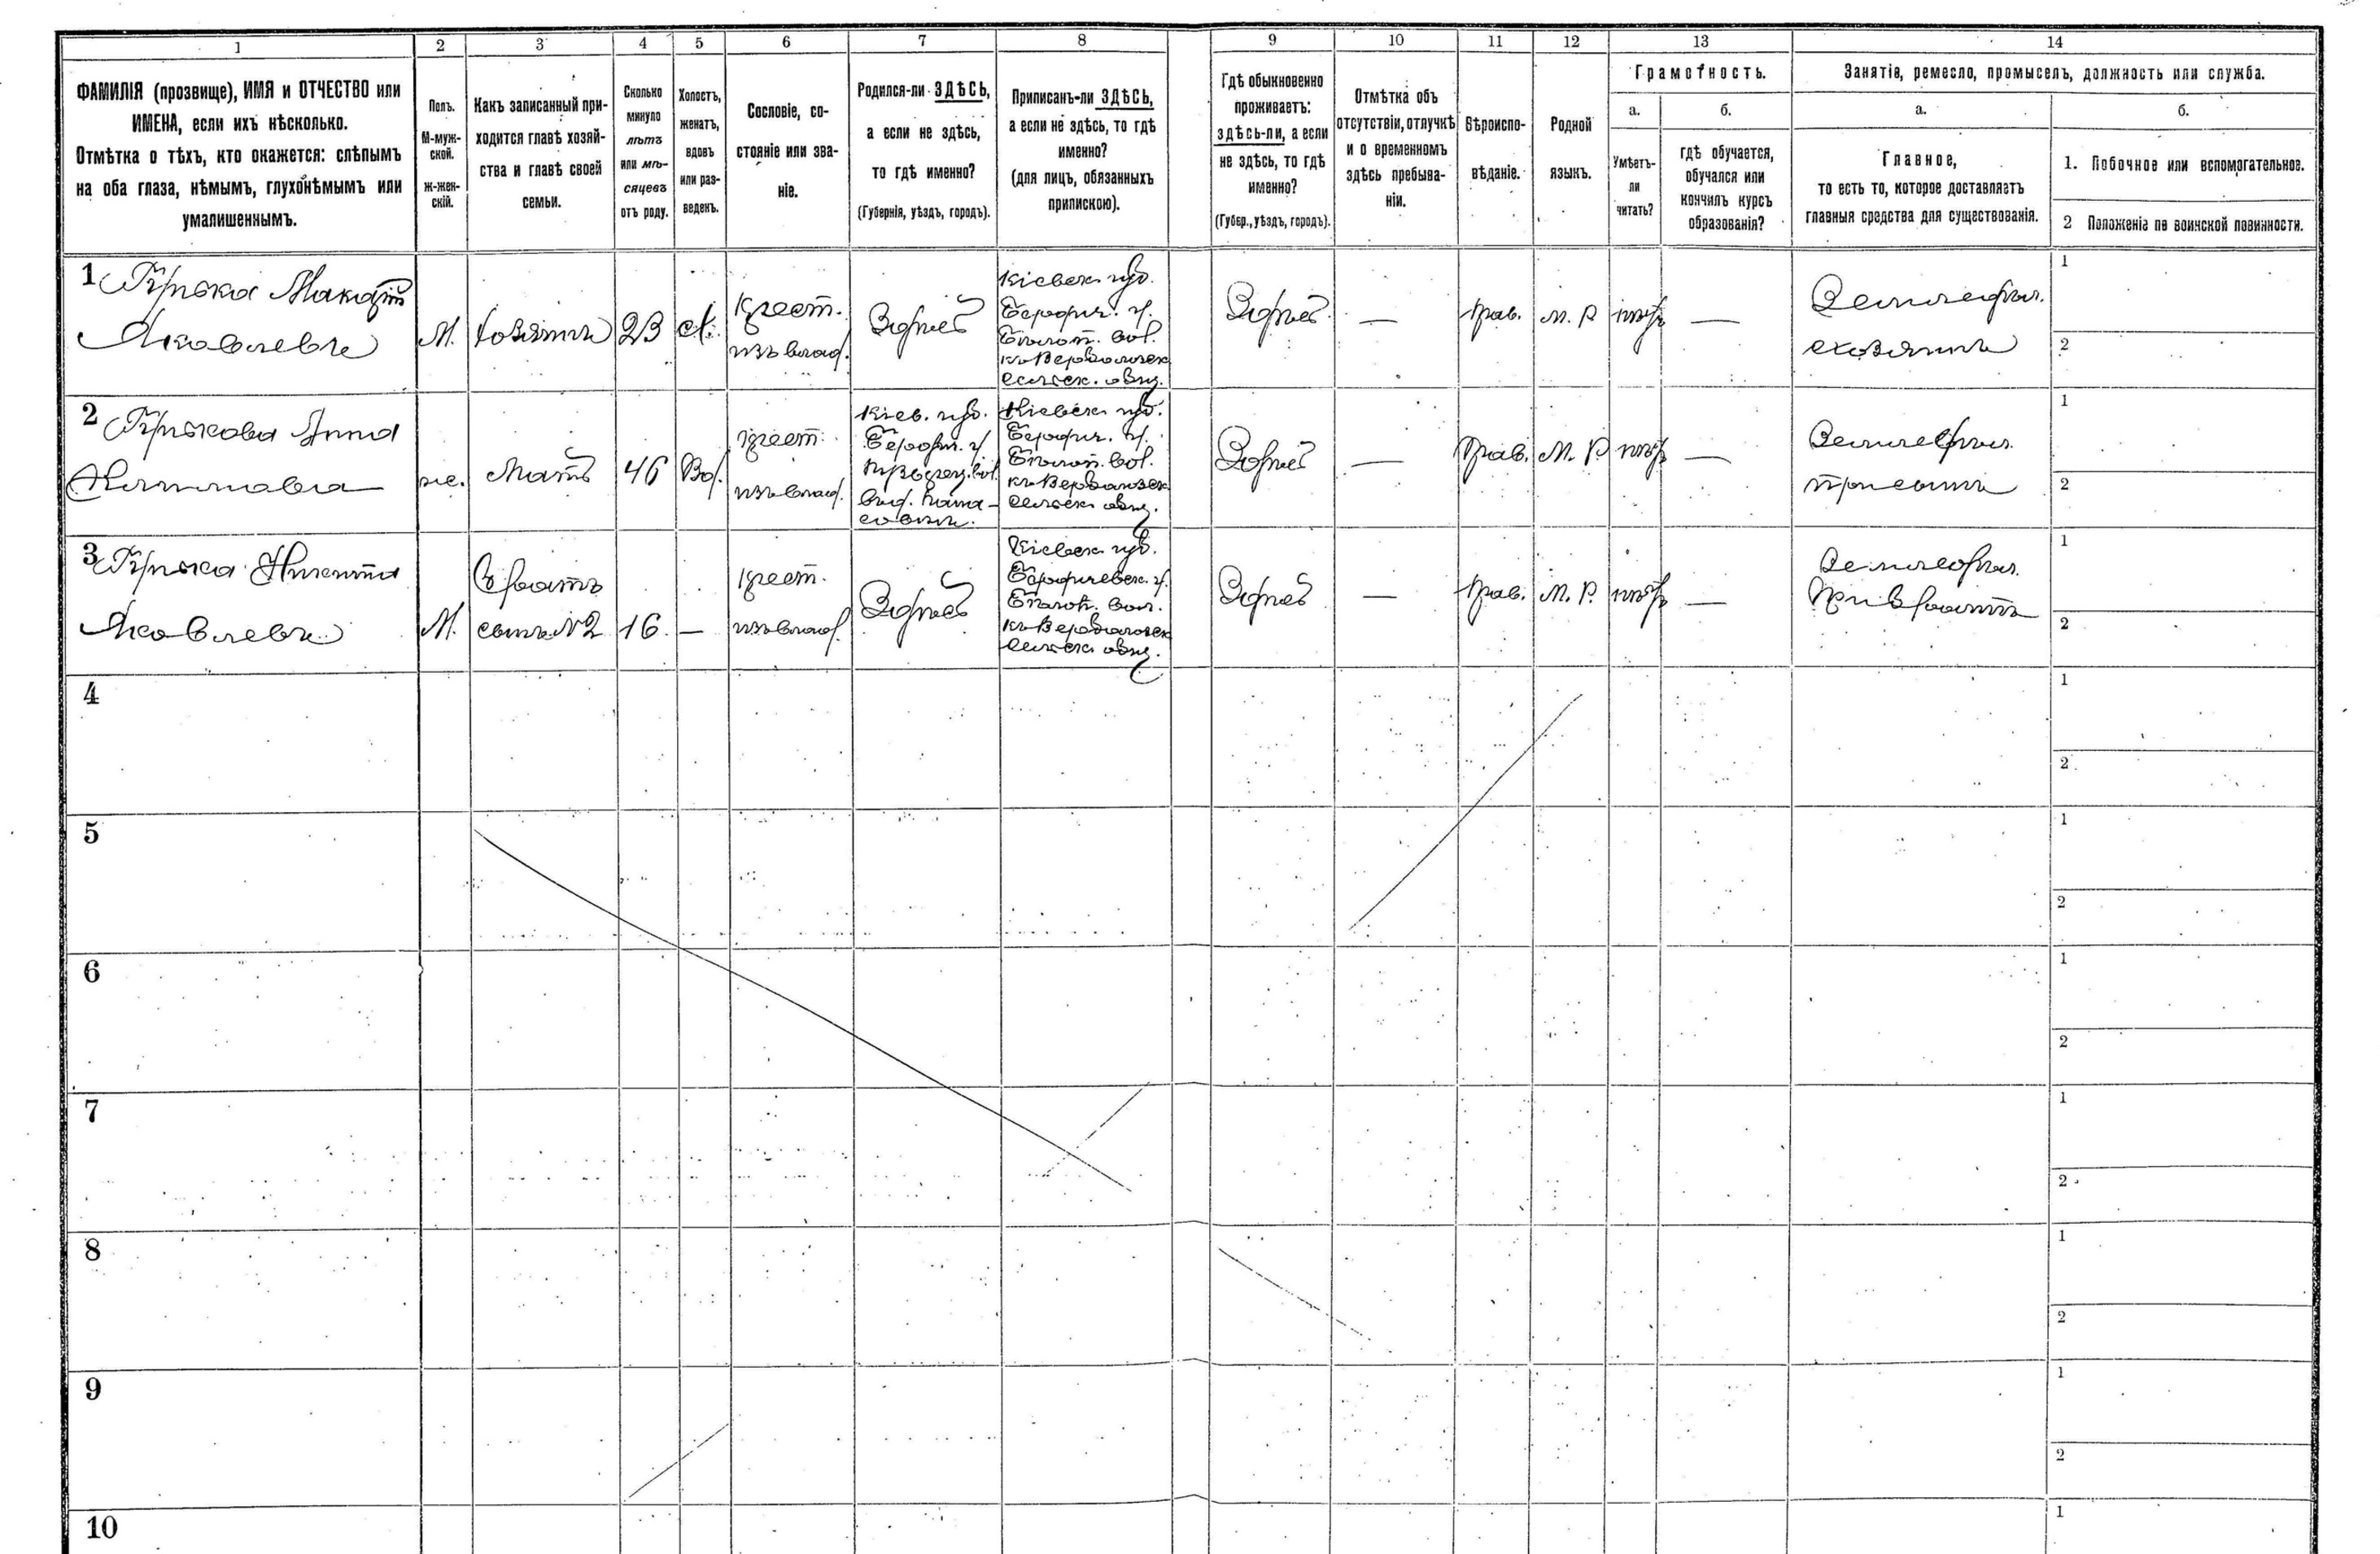 1 2 3 4 5 6 7 8 9 10 11 12 13 14
ФАМИЛІЯ (прозвище), ИМЯ и ОТЧЕСТВО или
ИМЕНА, если ихъ нѣсколько.
Отмѣтка о тѣхъ, кто окажется: слѣпымъ
на оба глаза, нѣмымъ, глухонѣмымъ или
умалишеннымъ.
Полъ.
М-муж-
ской.
ж-жен-
скій.
Какъ записанный при-
ходится главѣ хозяй-
ства и главѣ своей
семьи.
Сколько
минуло
лѣтъ
или мѣ-
сяцевъ
отъ роду.
Холостъ,
женатъ,
вдовъ
или раз-
веденъ.
Сословіе, со-
стояніе или зва-
ніе.
Родился-ли ЗДѢСЬ,
а если не здѣсь,
то гдѣ именно?
(Губернія, уѣздъ, городъ).
Приписанъ-ли ЗДѢСЬ,
а если не здѣсь, то гдѣ
именно?
(для лицъ, обязанныхъ
припискою).
Гдѣ обыкновенно
проживаетъ:
здѣсь-ли, а если
не здѣсь, то гдѣ
именно?
(Губер., уѣздъ, городъ).
Отмѣтка объ
отсутствіи, отлучкѣ
и о временномъ
здѣсь пребыва-
ніи.
Вѣроиспо-
вѣданіе.
Родной
языкъ.
Грамотность.
а.
Умѣетъ-
ли
читать?
б.
гдѣ обучается,
обучался или
кончилъ курсъ
образованія?
Занятіе, ремесло, промыселъ, должность или служба.
а.
Главное,
то есть то, которое доставляетъ
главныя средства для существованія.
б.
1. Побочное или вспомогательное.
2 Положеніе по воинской повинности.
1
Яковлевъ
М.
хозяинъ
23
крест.
изъ влад.
Здѣсь
Кіевск. губ.
Бердич. у.
вол.
сельск. общ.
Здѣсь
—
Прав.
М. Р
нѣтъ
—
Земледѣл.
хозяинъ
1
2
2
Анна
ж.
Мать
46
Вд.
крест.
изъ влад.
Кіев. губ.
Бердич. у.
Кіевск. губ.
Бердич. у.
вол.
сельск. общ.
Здѣсь
—
Прав.
М. Р
нѣтъ
—
Земледѣл.
при сынѣ
1
2
3
Никита
Яковлевъ
М.
Братъ
сынъ №2
16
—
крест.
изъ влад.
Здѣсь
Кіевск. губ.
Бердичевск. у.
вол.
сельск. общ.
Здѣсь
—
Прав.
М. Р.
нѣтъ
—
Земледѣл.
При братѣ
1
2
4
1
2
5
1
2
6
1
2
7
1
2
8
1
2
9
1
2
10
1